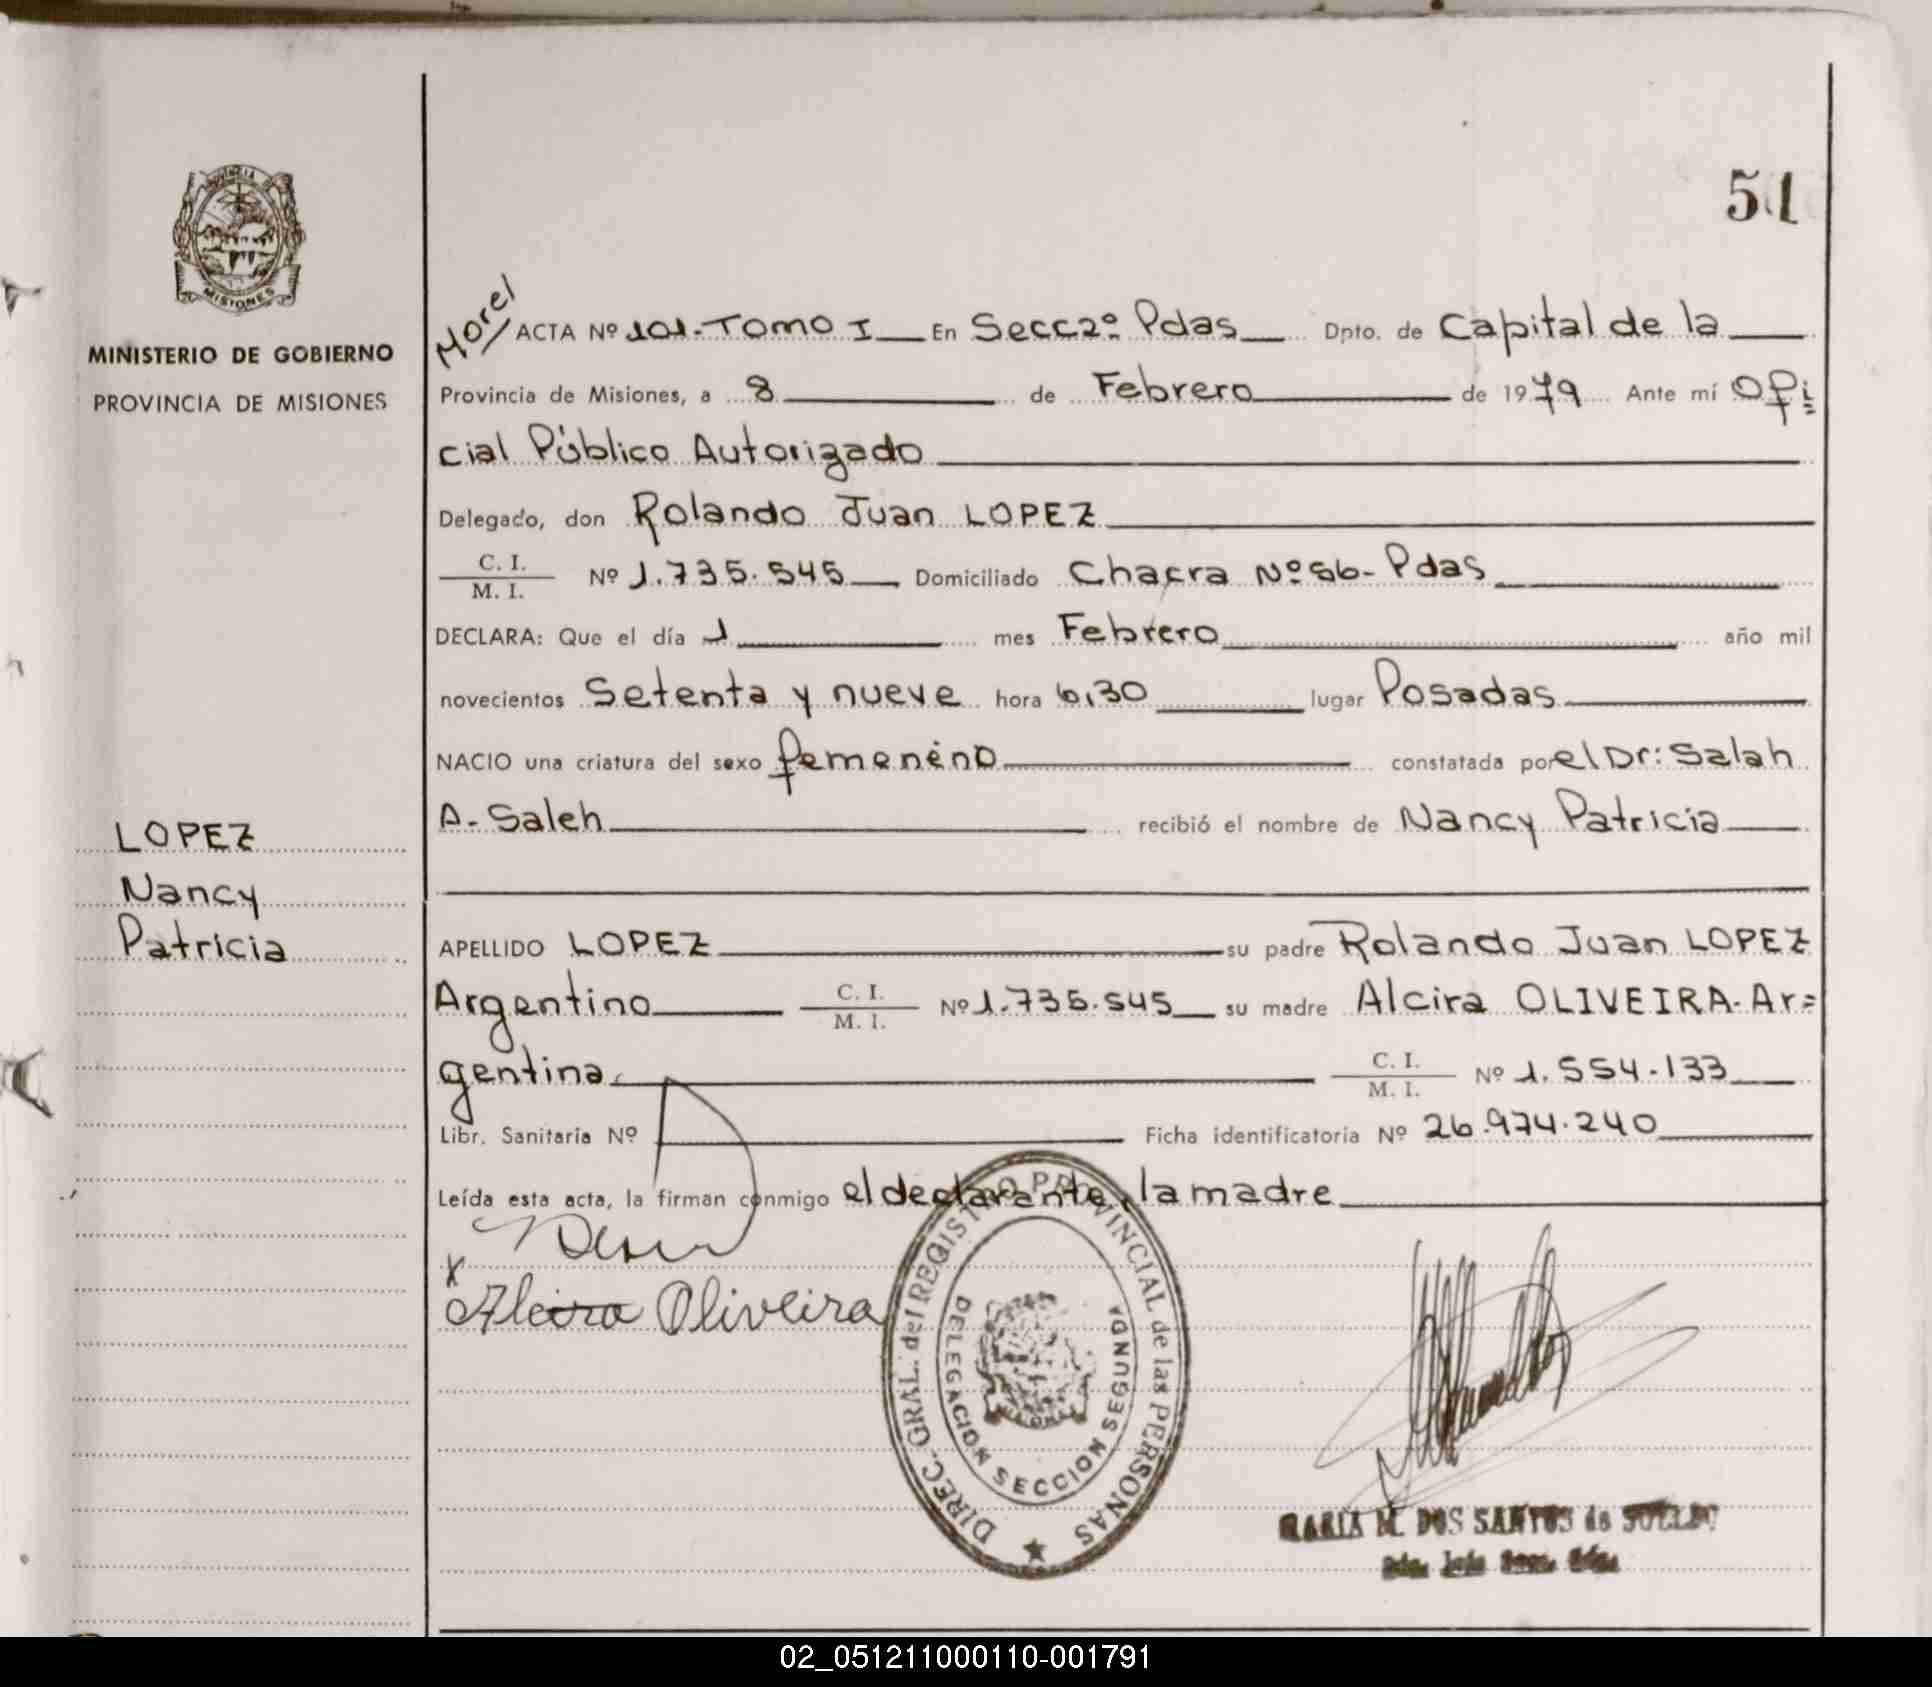 51
MINISTERIO DE GOBIERNO
PROVINCIA DE MISIONES
MISIONES
LOPEZ
Nancy
Patricia
Morel
ACTA Nº 101-Tomo I En Secc 2º Pdas Dpto. de Capital de la
Provincia de Misiones, a 8 de Febrero de 1979 Ante mí Ofi
cial Público Autorizado
Delegado, don Rolando Juan LOPEZ
C. I.
M. I. Nº 1.735.545 Domiciliado Chacra Nº 86- Pdas
DECLARA: Que el día 1 mes Febrero año mil
novecientos Setenta y nueve hora 6,30 lugar Posadas
NACIO una criatura del sexo femenino constatada por el Dr: Salah
A. Saleh recibió el nombre de Nancy Patricia
APELLIDO LOPEZ su padre Rolando Juan LOPEZ
Argentino C. I.
M. I. Nº 1.735.545 su madre Alcira OLIVEIRA- Ar=
gentina C. I.
M. I. Nº 1.554.133
Libr. Sanitaria Nº Ficha identificatoria Nº 26.974.240
Leída esta acta, la firman conmigo el declarante, la madre
X
Alcira Oliveira
DIREC. GRAL. del REGISTRO PROVINCIAL de las PERSONAS
DELEGACION SECCION SEGUNDA
MARIA M. DOS SANTOS de
02_051211000110-001791